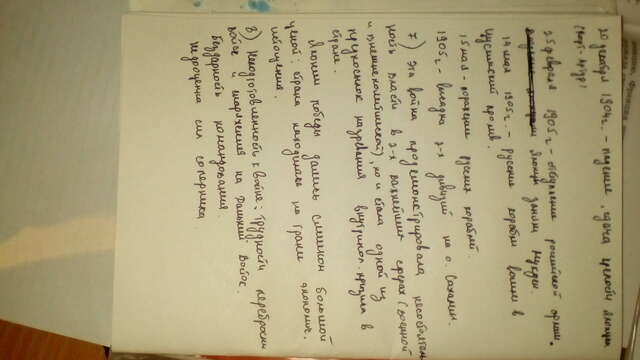 20 декабря 1904г. – падение, сдача крепости японцам
(Порт-Артур)
25 февраля 1905г – отступление российской армии.
японцы заняли Мукден
14 мая 1905г. – русские корабли вошли в
Цусимский пролив.
15 мая – поражение русских кораблей.
1905г – высадка 2-х дивизий на о. Сахалин.
7) Эта война продемонстрировала несостоятель
ность власти в 2-х важнейших сферах (военной
и внешнеполитической), но и стала одной из
предпосылок назревания внутрипол. кризиса в
стране.
Японии победы дались слишком большой
ценой: страна находилась на грани эконом.
истощения.
8) Неподготовленность к войне; трудности переброски
войск и снаряжения на Дальний Восток.
бездарность командования.
недооценка сил соперника